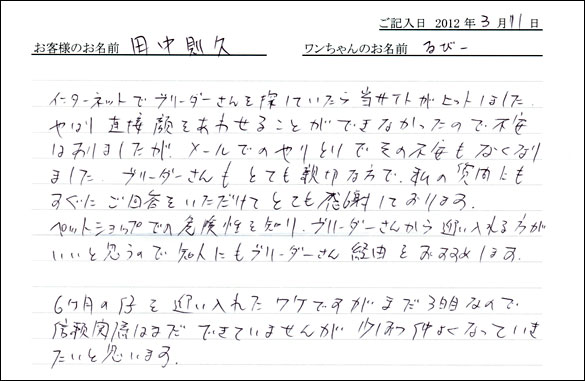 ご記入日 2012 年 3 月 11 日
お客様のお名前 田中則久 ワンちゃんのお名前 るびー
インターネットでブリーダーさんを探していたら当サイトがヒットしました。
やはり直接顔をあわせることができなかったので不安
はありましたが、メールでのやりとりでその不安もなくなり
ました。ブリーダーさんもとても親切な方で、私の質問にも
すぐにご回答をいただけてとても感謝しております。
ペットショップでの危険性を知り、ブリーダーさんから迎い入れる方が
いいと思うので知人にもブリーダーさん経由をおすすめします。
6ヶ月の仔を迎い入れたワケですがまだ3日目なので
信頼関係はまだできていませんが少しずつ仲よくなっていき
たいと思います。